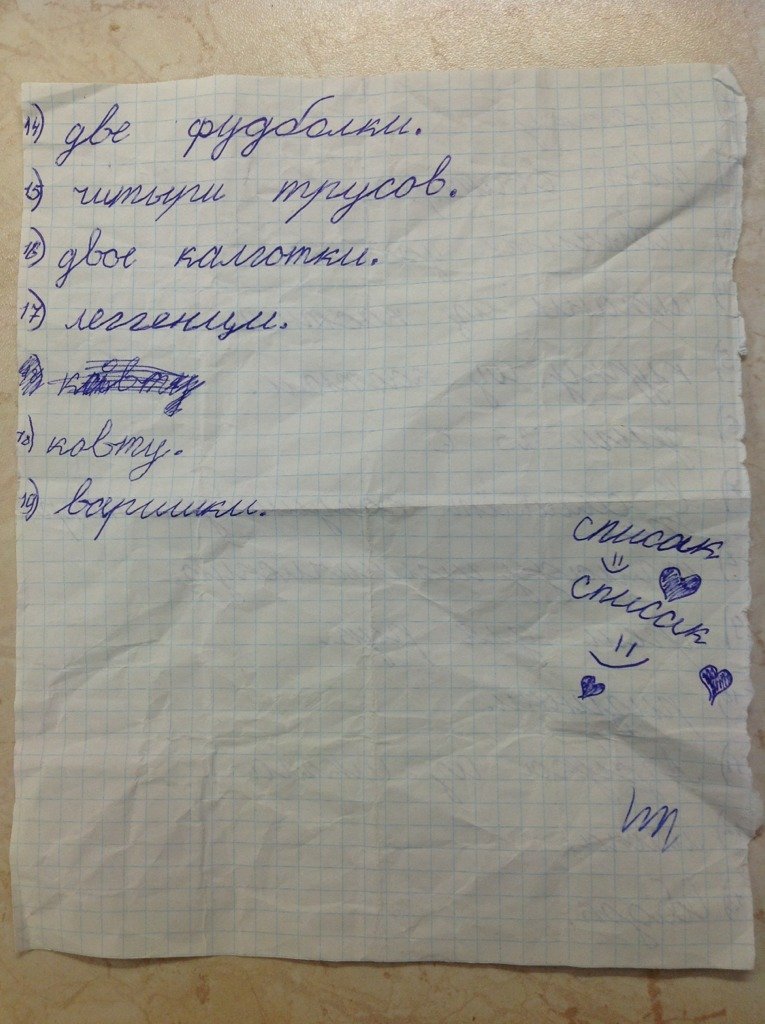 14) две фудболки.
15) читыри трусов.
16) двое калготки.
17) леггенцы.
18) ковту.
19) варишки.
списак
списак